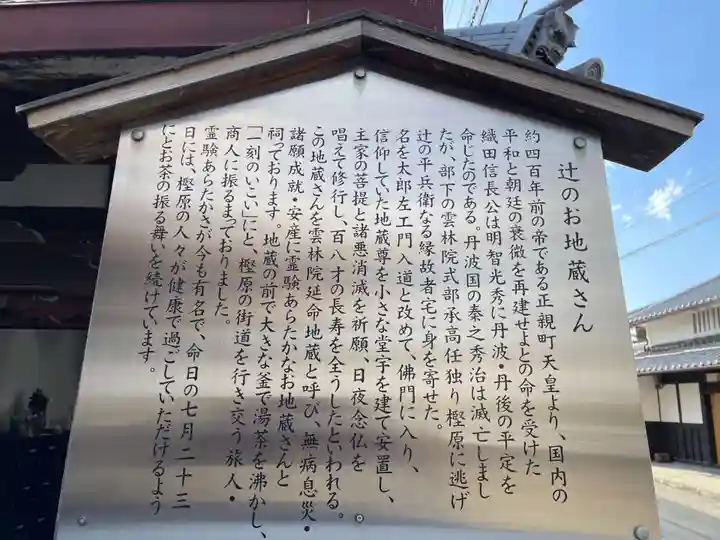 辻のお地蔵さん
約四百年前の帝である正親町天皇より、国内の
平和と朝廷の衰微を再建せよとの命を受けた
織田信長公は明智光秀に丹波・丹後の平定を
命じたのである。丹波国の秦之秀治は滅亡しまし
たが、部下の雲林院式部承高任独り樫原に逃げ
辻の平兵衛なる縁故者宅に身を寄せた。
名を太郎左エ門入道と改めて、佛門に入り、
信仰していた地蔵尊を小さな堂宇を建て安置し、
主家の菩提と諸悪消滅を祈願、日夜念仏を
唱えて修行し、百八才の長寿を全うしたといわれる。
この地蔵さんを雲林院延命地蔵と呼び、無病息災・
諸願成就・安産に霊験あらたかなお地蔵さんと
祠っております。地蔵の前で大きな釜で湯茶を沸かし、
「一刻のいこい」にと樫原の街道を行き交う旅人・
商人に振るまっておりました。
霊験あらたかさが今も有名で、命日の七月二十三
日には、樫原の人々が健康で過ごしていただけるよう
にとお茶の振る舞いを続けています。